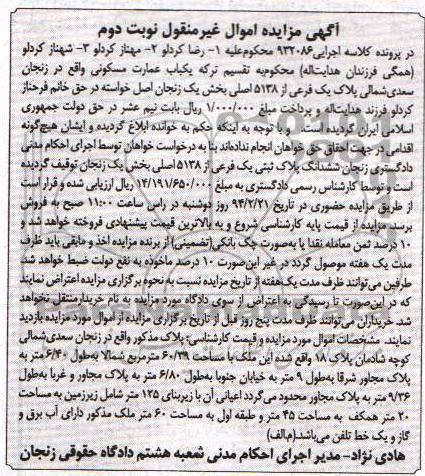 آگهی مزایده اموال غیرمنقول نوبت دوم
در پرونده کلاسه اجرایی۹۳۲۰۸۶ محکوم‌علیه ۱- رضا کردلو ۲- مهناز کردلو ۳- شهناز کردلو
(همگی فرزندان هدایت‌اله) محکوم‌به تقسیم ترکه یکباب عمارت مسکونی واقع در زنجان
سعدی‌شمالی پلاک یک فرعی از ۵۱۳۸ اصلی بخش یک زنجان اصل خواسته در حق خانم فرحناز
کردلو فرزند هدایت‌اله و پرداخت مبلغ ۱/۰۰۰/۰۰۰ ریال بابت نیم عشر در حق دولت جمهوری
اسلامی ایران گردیده است. و با توجه به اینکه حکم به خوانده ابلاغ گردیده و ایشان هیچ‌گونه
اقدامی از جهت احقاق حق خواهان انجام نداده‌اند بنا به درخواست خواهان توسط اجرای احکام مدنی
دادگستری زنجان ششدانگ پلاک ثبتی یک فرعی از ۵۱۳۸ اصلی بخش یک زنجان توقیف گردیده
است و توسط کارشناس رسمی دادگستری به مبلغ ۱۴/۱۹۱/۶۵۰/۰۰۰ ریال ارزیابی شده و قرار است
از طریق مزایده حضوری در تاریخ ۹۴/۲/۲۱ روز دوشنبه در راس ساعت ۱۱:۰۰ صبح به فروش
برسد. مزایده از قیمت پایه کارشناسی شروع و به بالاترین قیمت پیشنهادی فروخته خواهد شد و
۱۰ درصد ثمن معامله نقدا یا به‌صورت چک بانکی(تضمینی) از برنده مزایده اخذ و مابقی باید ظرف
مدت یک هفته موصول گردد در غیر این‌صورت ۱۰ درصد ماخوذه به نفع دولت ضبط خواهد شد
طرفین می‌توانند ظرف مدت یک‌هفته از تاریخ مزایده نسبت به نحوه برگزاری مزایده اعتراض نمایند
که در این‌صورت تا رسیدگی به اعتراض از سوی دادگاه مورد مزایده به نام خریدار منتقل نخواهد
شد. خریداران می‌توانند ظرف مدت پنج روز قبل از تاریخ برگزاری مزایده از اموال مورد مزایده بازدید
نمایند. مشخصات اموال مورد مزایده و قیمت کارشناسی: پلاک مذکور واقع در زنجان سعدی‌شمالی
کوچه شادمان پلاک ۱۸ واقع شده این ملک با مساحت ۶۰/۳۹ مترمربع شمالا به‌طول ۶/۴۰ متر به
پلاک مجاور شرقا به‌طول ۹ متر به خیابان جنوبا به‌طول ۶/۸۰ متر به پلاک مجاور و غربا به‌طول
۹/۳۶ متر به پلاک مجاور محدود می‌گردد اعیانی آن با زیربنای ۱۲۵ متر شامل زیرزمین به مساحت
۲۰ متر همکف به مساحت ۴۵ متر و طبقه اول به مساحت ۶۰ متر ملک مذکور دارای آب برق و
گاز و یک خط تلفن می‌باشد.(م‌الف)
هادی نژاد- مدیر اجرای احکام مدنی شعبه هشتم دادگاه حقوقی زنجان